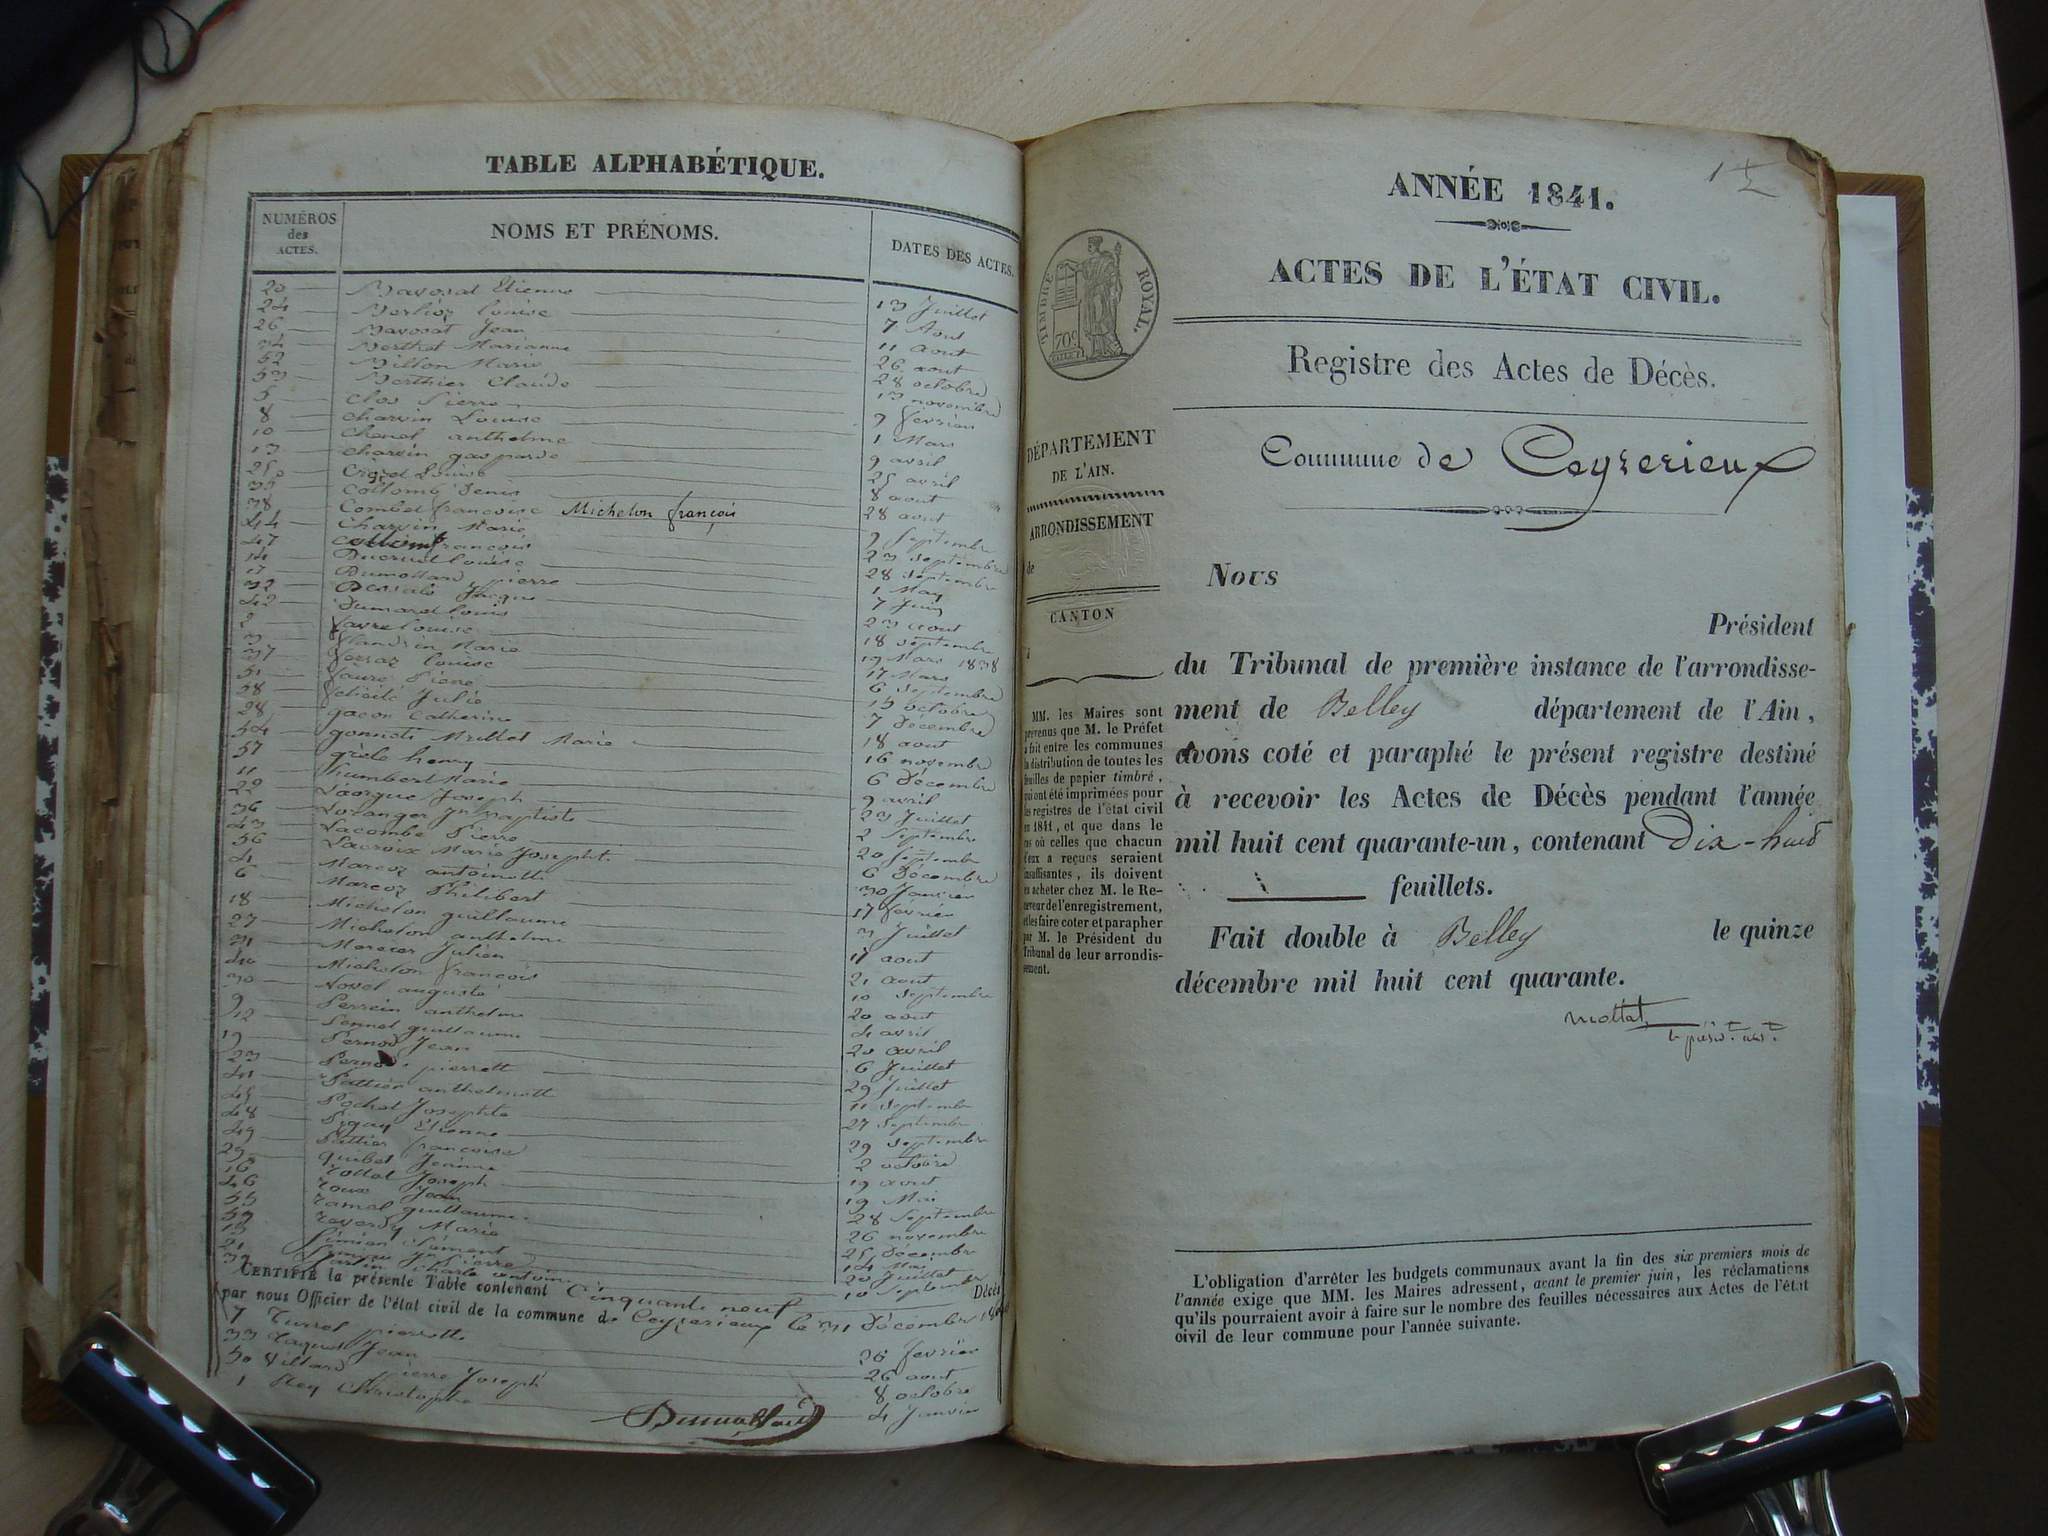 TABLE ALPHABÉTIQUE.
NUMÉROS
des
ACTES.
NOMS ET PRÉNOMS.
DATES DES ACTES.
20 Etienne 13 Juillet
24 Berlioz Louise 7 Aout
26 Jean 11 aout
34 Berthet Marianne 26 aout
52 Billon Marie 28 octobre
53 Berthier Claude 13 novembre
5 Clos Pierre 9 février
8 Charvin Louise 1 Mars
10 Chenel anthelme 9 avril
13 Charvin gasparde 25 avril
Louise 8 aout
Collomb Denis 28 aout
38 Combet françoise Michelon françois 9 Septembre
44 Charvin Marie 23 Septembre
47 françois 28 Septembre
14 Ducruet Louise 1 May
17 Dumollard pierre 7 Juin
32 Jacque 23 aout
42 Dumarel Louis 18 septembre
2 favre Louise 19 Mars 1838
3 flandrin Marie 17 Mars
37 Louise 6 Septembre
51 faure Pierre 15 octobre
58 félicité Julie 7 Décembre
28 gacon Catherine 18 aout
54 Millet Marie 16 novembre
57 henry 6 Décembre
11 humbert Marie 9 avril
22 Joseph 23 Juillet
36 Jn Baptiste 2 Septembre
43 Lacombe Pierre 20 Septembre
56 Lacroix Marie Josephte 6 Décembre
4 Marcoz antoinette 30 Janvier
6 Marcoz Philibert 17 février
18 Michelon guillaume 3 Juillet
27 Michelon anthelme 17 aout
31 Mercier Julien 21 aout
40 Michelon françois 10 septembre
30 Novel auguste 20 aout
9 Perrein anthelme 4 avril
12 Pernet guillaume 20 avril
19 Pernod Jean 6 Juillet
23 pierrette 29 Juillet
41 anthelmette 11 septembre
45 Pochet Josephte 27 Septembre
48 Etienne 29 Septembre
49 françoise 2 octobre
29 quibet Jeanne 19 aout
16 rottet Joseph 19 Mai
46 roux Jean 28 Septembre
55 ramel guillaume 26 novembre
59 reverdy Marie 25 Décembre
15 Simian 14 Mai
21 Pierre 20 Juillet
39 Charle antoine 10 Septembre
CERTIFIÉ la présente Table contenant Cinquante neuf Décès
par nous Officier de l'état civil de la commune de Ceyzerieux le 31 Décembre 1840
7 Turrel pierrette 26 fevrier
33 Jean 26 aout
50 Villard Pierre Joseph 8 octobre
1 Rey Christophe 4 Janvier
Dumollard
1
ANNÉE 1841.
ACTES DE L'ÉTAT CIVIL.
TIMBRE ROYAL.
70c
Registre des Actes de Décès.
Commune de Ceyzerieux
DÉPARTEMENT
DE L'AIN.
ARRONDISSEMENT
de
CANTON
MM. les Maires sont
prévenus que M. le Préfet
a fait entre les communes
la distribution de toutes les
feuilles de papier timbré,
qui ont été imprimées pour
les registres de l'état civil
en 1841, et que dans le
cas où celles que chacun
d'eux a reçues seraient
insuffisantes, ils doivent
en acheter chez M. le Re-
ceveur de l'enregistrement,
et les faire coter et parapher
par M. le Président du
Tribunal de leur arrondis-
sement.
Nous
Président
du Tribunal de première instance de l'arrondisse-
ment de Belley département de l'Ain,
avons coté et paraphé le présent registre destiné
à recevoir les Actes de Décès pendant l'année
mil huit cent quarante-un, contenant Dix-huit
feuillets.
Fait double à Belley le quinze
décembre mil huit cent quarante.
mottat
L'obligation d'arrêter les budgets communaux avant la fin des six premiers mois de
l'année exige que MM. les Maires adressent, avant le premier juin, les réclamations
qu'ils pourraient avoir à faire sur le nombre des feuilles nécessaires aux Actes de l'état
civil de leur commune pour l'année suivante.